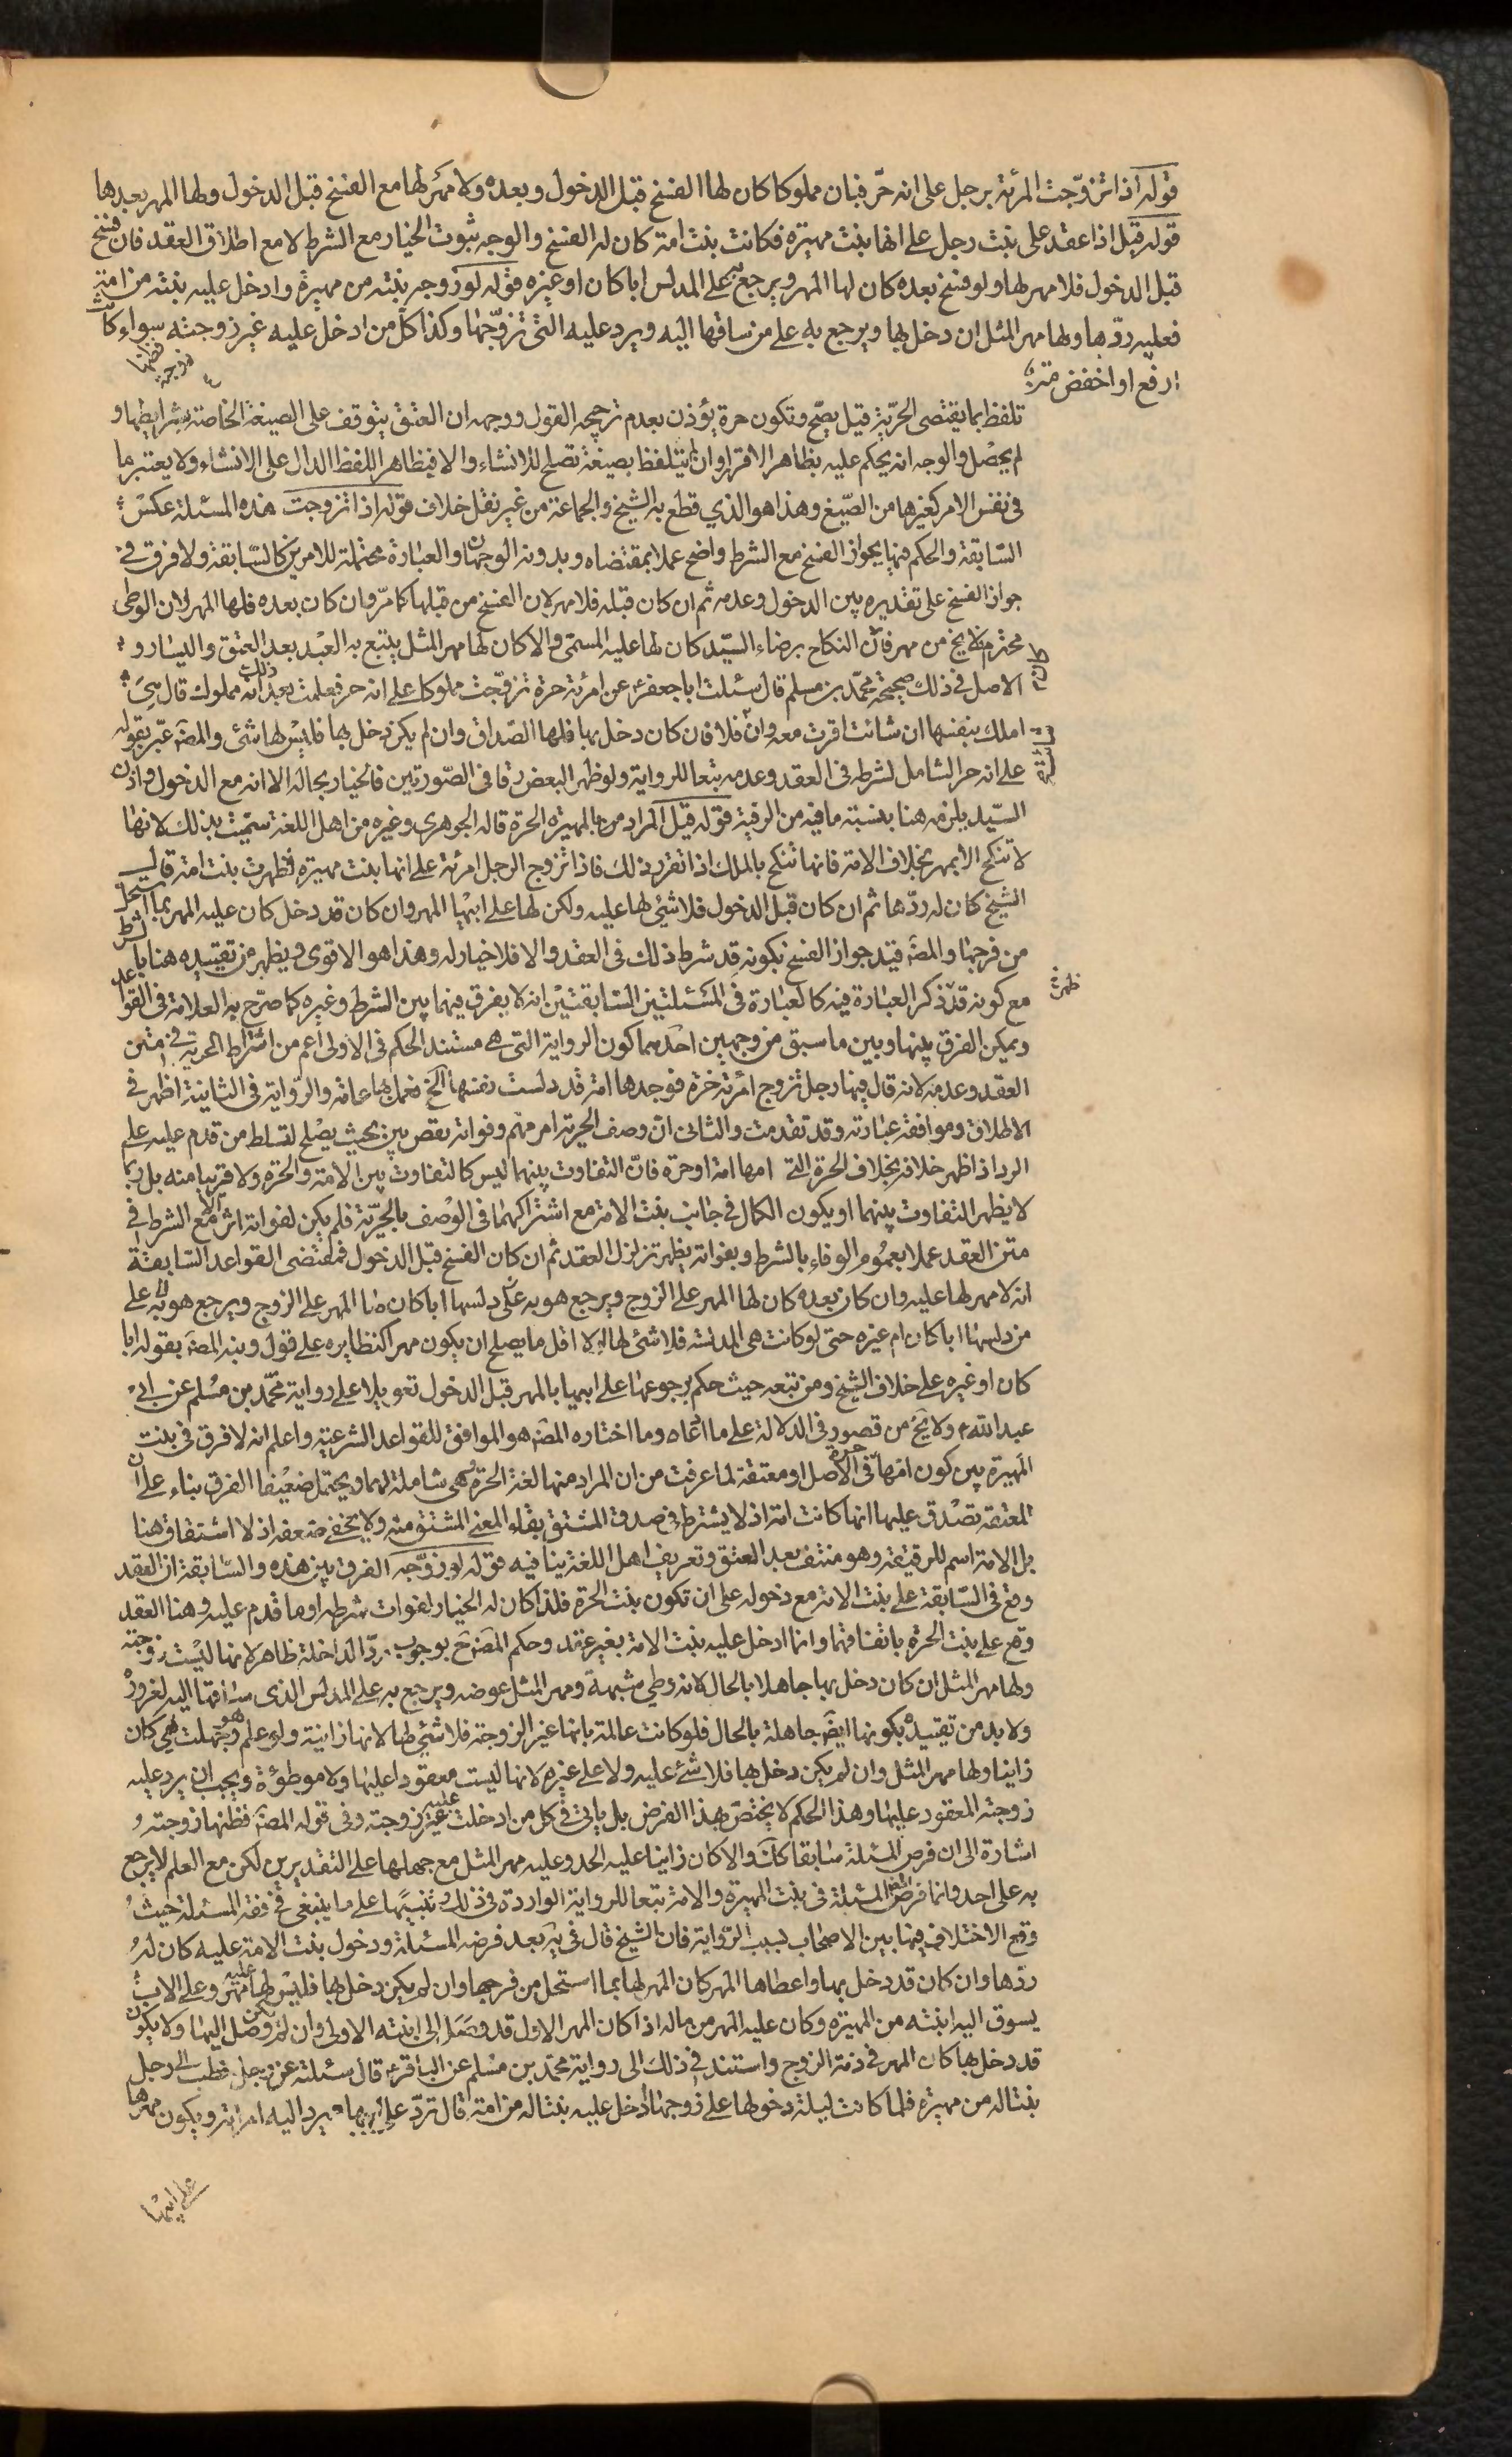 قوله اذا تزوّجت المرئة برجل على انه حرّ فبان مملوكا كان لها الفسخ قبل الدخول وبعده ولا مهر لها مع الفسخ قبل الدخول ولها المهر بعدها
قوله قيل اذا عقد على بنت رجل على انها بنت مهيرة فكانت بنت امة كان له الفسخ والوجه ثبوت الخيار مع الشرط لا مع اطلاق العقد فان فسخ
قبل الدخول فلا مهر لها ولو فسخ بعده كان لها المهر ويرجع به على المدلس ابا كان او غيره قوله لو زوجه بنته من مهيرة وادخل عليه بنته من امة
فعليه ردّها ولها مهر المثل ان دخل بها ويرجع به على من ساقها اليه ويرد عليه التى تزوّجها وكذا كل من ادخل عليه غير زوجته فظنها زوجته سواء كانت
ارفع او اخفض
تلفظ بما يقتضى الحرّية قيل يصحّ وتكون حرة يؤذن بعدم ترجيحه القول ووجهه ان العتق يتوقف على الصيغة الخاصة بشرايطها و
لم يحصل والوجه انه يحكم عليه بظاهر الاقرار وان لم يتلفظ بصيغة تصلح للانشاء والا فبظاهر اللفظ الدال على الانشاء ولا يعتبر ما
فى نفس الامر كغيرها من الصّيغ وهذا هو الذي قطع به الشيخ والجماعة من غير نقل خلاف قوله اذا تزوجت هذه المسئلة عكس
السّابقة والحكم فيها بجواز الفسخ مع الشرط واضح عملا بمقتضاه وبدونه الوجهان والعبارة محتملة للامرين كالسّابقة ولا فرق فى
جواز الفسخ على تقديره بين الدخول وعدمه ثم ان كان قبله فلا مهر لان الفسخ من قبلها كما مرّ وان كان بعده فلها المهر لان الوطى
محترم فلا يخ من مهر فان كان النكاح برضاء السيّد كان لها عليه المسمّى والا كان لها مهر المثل يتبع به العبد بعد العتق واليسار و
الاصل فى ذلك صحيحة محمّد بن مسلم قال سئلت ابا جعفر عن امرئة حرة تزوّجت مملوكا على انه حر فعلمت بعد ذلك انه مملوك قال هى
املك بنفسها ان شائت اقرت معه وان شائت فلا فان كان دخل بها فلها الصّداق وان لم يكن دخل بها فليس لها شئ والمصَ عبّر بقوله
على انه حر الشامل لشرطه فى العقد وعدمه تبعا للرواية ولو ظهر البعض رقا فى الصّورتين فالخيار بحاله الا انه مع الدخول واذن
السيّد يلزمه هنا بنسبة ما فيه من الرقية قوله قيل المراد من بالمهيرة الحرة قاله الجوهري وغيره من اهل اللغة سمّيت بذلك لانها
لا تنكح الا بمهر بخلاف الامة فانها تنكح بالملك اذا تقرر ذلك فاذا تزوج الرجل امرئة على انها بنت مهيرة فظهرت بنت امة قال
الشيخ كان له ردّها ثم ان كان قبل الدخول فلا شئ لها عليه ولكن لها على ابيها المهر وان كان قد دخل كان عليه المهر بما استحل
من فرجها والمصَ قيّد جواز الفسخ بكونه قد شرط ذلك فى العقد والا فلا خيار له وهذا هو الاقوى ويظهر من تقييده هنا بالشرط
مع كونه قد ذكر العبارة فيه كالعبارة فى المسئلتين السّابقتين انه لا يفرق فيهما بين الشرط وغيره كما صرّح به العلامة فى القواعد
ويمكن الفرق بينها وبين ما سبق من وجهين احدهما كون الرواية التى هى مستند الحكم فى الاولى اعم من اشتراط الحرية فى متن
العقد وعدمه لانه قال فيها رجل تزوج امرئة حرة فوجدها امة قد دلست نفسها الخ فعمل بها عامة والرّواية فى الثانية اظهر فى
الاطلاق وموافقة عبارته وقد تقدمت والثانى ان وصف الحرية امر مهم وفواته نقص بين بحيث يصلح لتسلط من قدم عليه على
الرد اذا ظهر خلافه بخلاف الحرة التى امها امة او حرة فانّ التفاوت بينهما ليس كالتفاوت بين الامة والحرة ولا قريبا منه بل ربما
لا يظهر التفاوت بينهما او يكون الكمال فى جانب بنت الامة مع اشتراكهما فى الوصف بالحرّية فلم يكن لفواته اثر الا مع الشرط فى
متن العقد عملا بعموم الوفاء بالشرط وبفواته يظهر تزلزل العقد ثم ان كان الفسخ قبل الدخول فمقتضى القواعد السّابقة
انه لا مهر لها عليه وان كان بعده كان لها المهر على الزوج ويرجع هو به على من دلسها ابا كان لها المهر على الزوج ويرجع هو به على
من دلسها ابا كان ام غيره حتى لو كانت هى المدلسة فلا شئ لها الا اقل ما يصلح ان يكون مهرا كنظايره على قول ونبه المصَ بقوله ابا
كان او غيره على خلاف الشيخ ومن تبعه حيث حكم برجوعها على ابيها بالمهر قبل الدخول تعويلا على رواية محمّد بن مسلم عن ابى
عبد الله ولا يخ من قصور فى الدلالة على ما ادعاه وما اختاره المصَ هو الموافق للقواعد الشرعية واعلم انه لا فرق فى بنت
المهيرة بين كون امّها حرة فى الاصل او معتقة لما عرفت من ان المراد منها لغة الحرة وهى شاملة لهما ويحتمل ضعيفا الفرق بناء على ان
المعتقة تصدق عليها انها كانت امة اذ لا يشترط فى صدق المشتق بقاء المعنى المشتق منه ولا يخفى ضعفه اذ لا اشتقاق هنا
بل الامة اسم للرقيقة وهو منتف بعد العتق وتعريف اهل اللغة ينافيه قوله لو زوّجه الفرق بين هذه والسّابقة ان العقد
وقع فى السّابقة على بنت الامة مع دخوله على ان تكون بنت الحرة فلذا كان له الخيار لفوات شرطه او ما قدم عليه وهنا العقد
وقع على بنت الحرّة باتفاقهما وانما ادخل عليه بنت الامة بغير عقد وحكم المصَ بوجوب ردّ الداخلة ظاهر لانها ليست زوجته
ولها مهر المثل ان كان دخل بها جاهلا بالحال لانه وطئ شبهة ومهر المثل عوضه ويرجع به على المدلس الذى ساقها اليه لغروره
ولا بد من تقييده بكونها ايضَ جاهلة بالحال فلو كانت عالمة بانها غير الزوجة فلا شئ لها لانها زانية ولو علم هو وجهلت هى كان
زانيا ولها مهر المثل وان لم يكن دخل بها فلا شئ عليه ولا على غيره لانها ليست معقودا عليها ولا موطوئة ويجب ان يرد عليه
زوجته المعقود عليها وهذا الحكم لا يختصّ بهذا الفرض بل ياتى فى كل من ادخلت عليه غير زوجته وفى قوله المصَ فظنها زوجته
اشارة الى ان فرض المسئلة سابقا كك والا كان زانيا عليه الحد وعليه مهر المثل مع جهلها على التقديرين لكن مع العلم لا يرجع
به على احد وانما فرض المصَ المسئلة فى بنت المهيرة والامة تبعا للرواية الواردة فى ذلك وتنبيها على ما ينبغى فى فقه المسئلة حيث
وقع الاختلاف فيها بين الاصحاب بسبب الرّواية فان الشيخ قال فى يَه بعد فرضه المسئلة ودخول بنت الامة عليه كان له
ردّها وان كان قد دخل بها واعطاها المهر كان المهر لها بما استحل من فرجها وان لم يكن دخل بها فليس لها عليه مهر وعلى الاب ان
يسوق اليه ابنته من المهيرة وكان عليه المهر من ماله اذا كان المهر الاول قد وصل الى ابنته الاولى وان لم يكن وصل اليها ولا يكون
قد دخل بها كان المهر فى ذمة الزوج واستند فى ذلك الى رواية محمّد بن مسلم عن الباقر قال سئلته عن رجل خطب الى رجل
بنتا له من مهيرة فلما كانت ليلة دخولها على زوجها ادخل عليه بنتا له من امة قال تردّ على ابيها ويرد اليه امراته ويكون مهرها
على ابيها